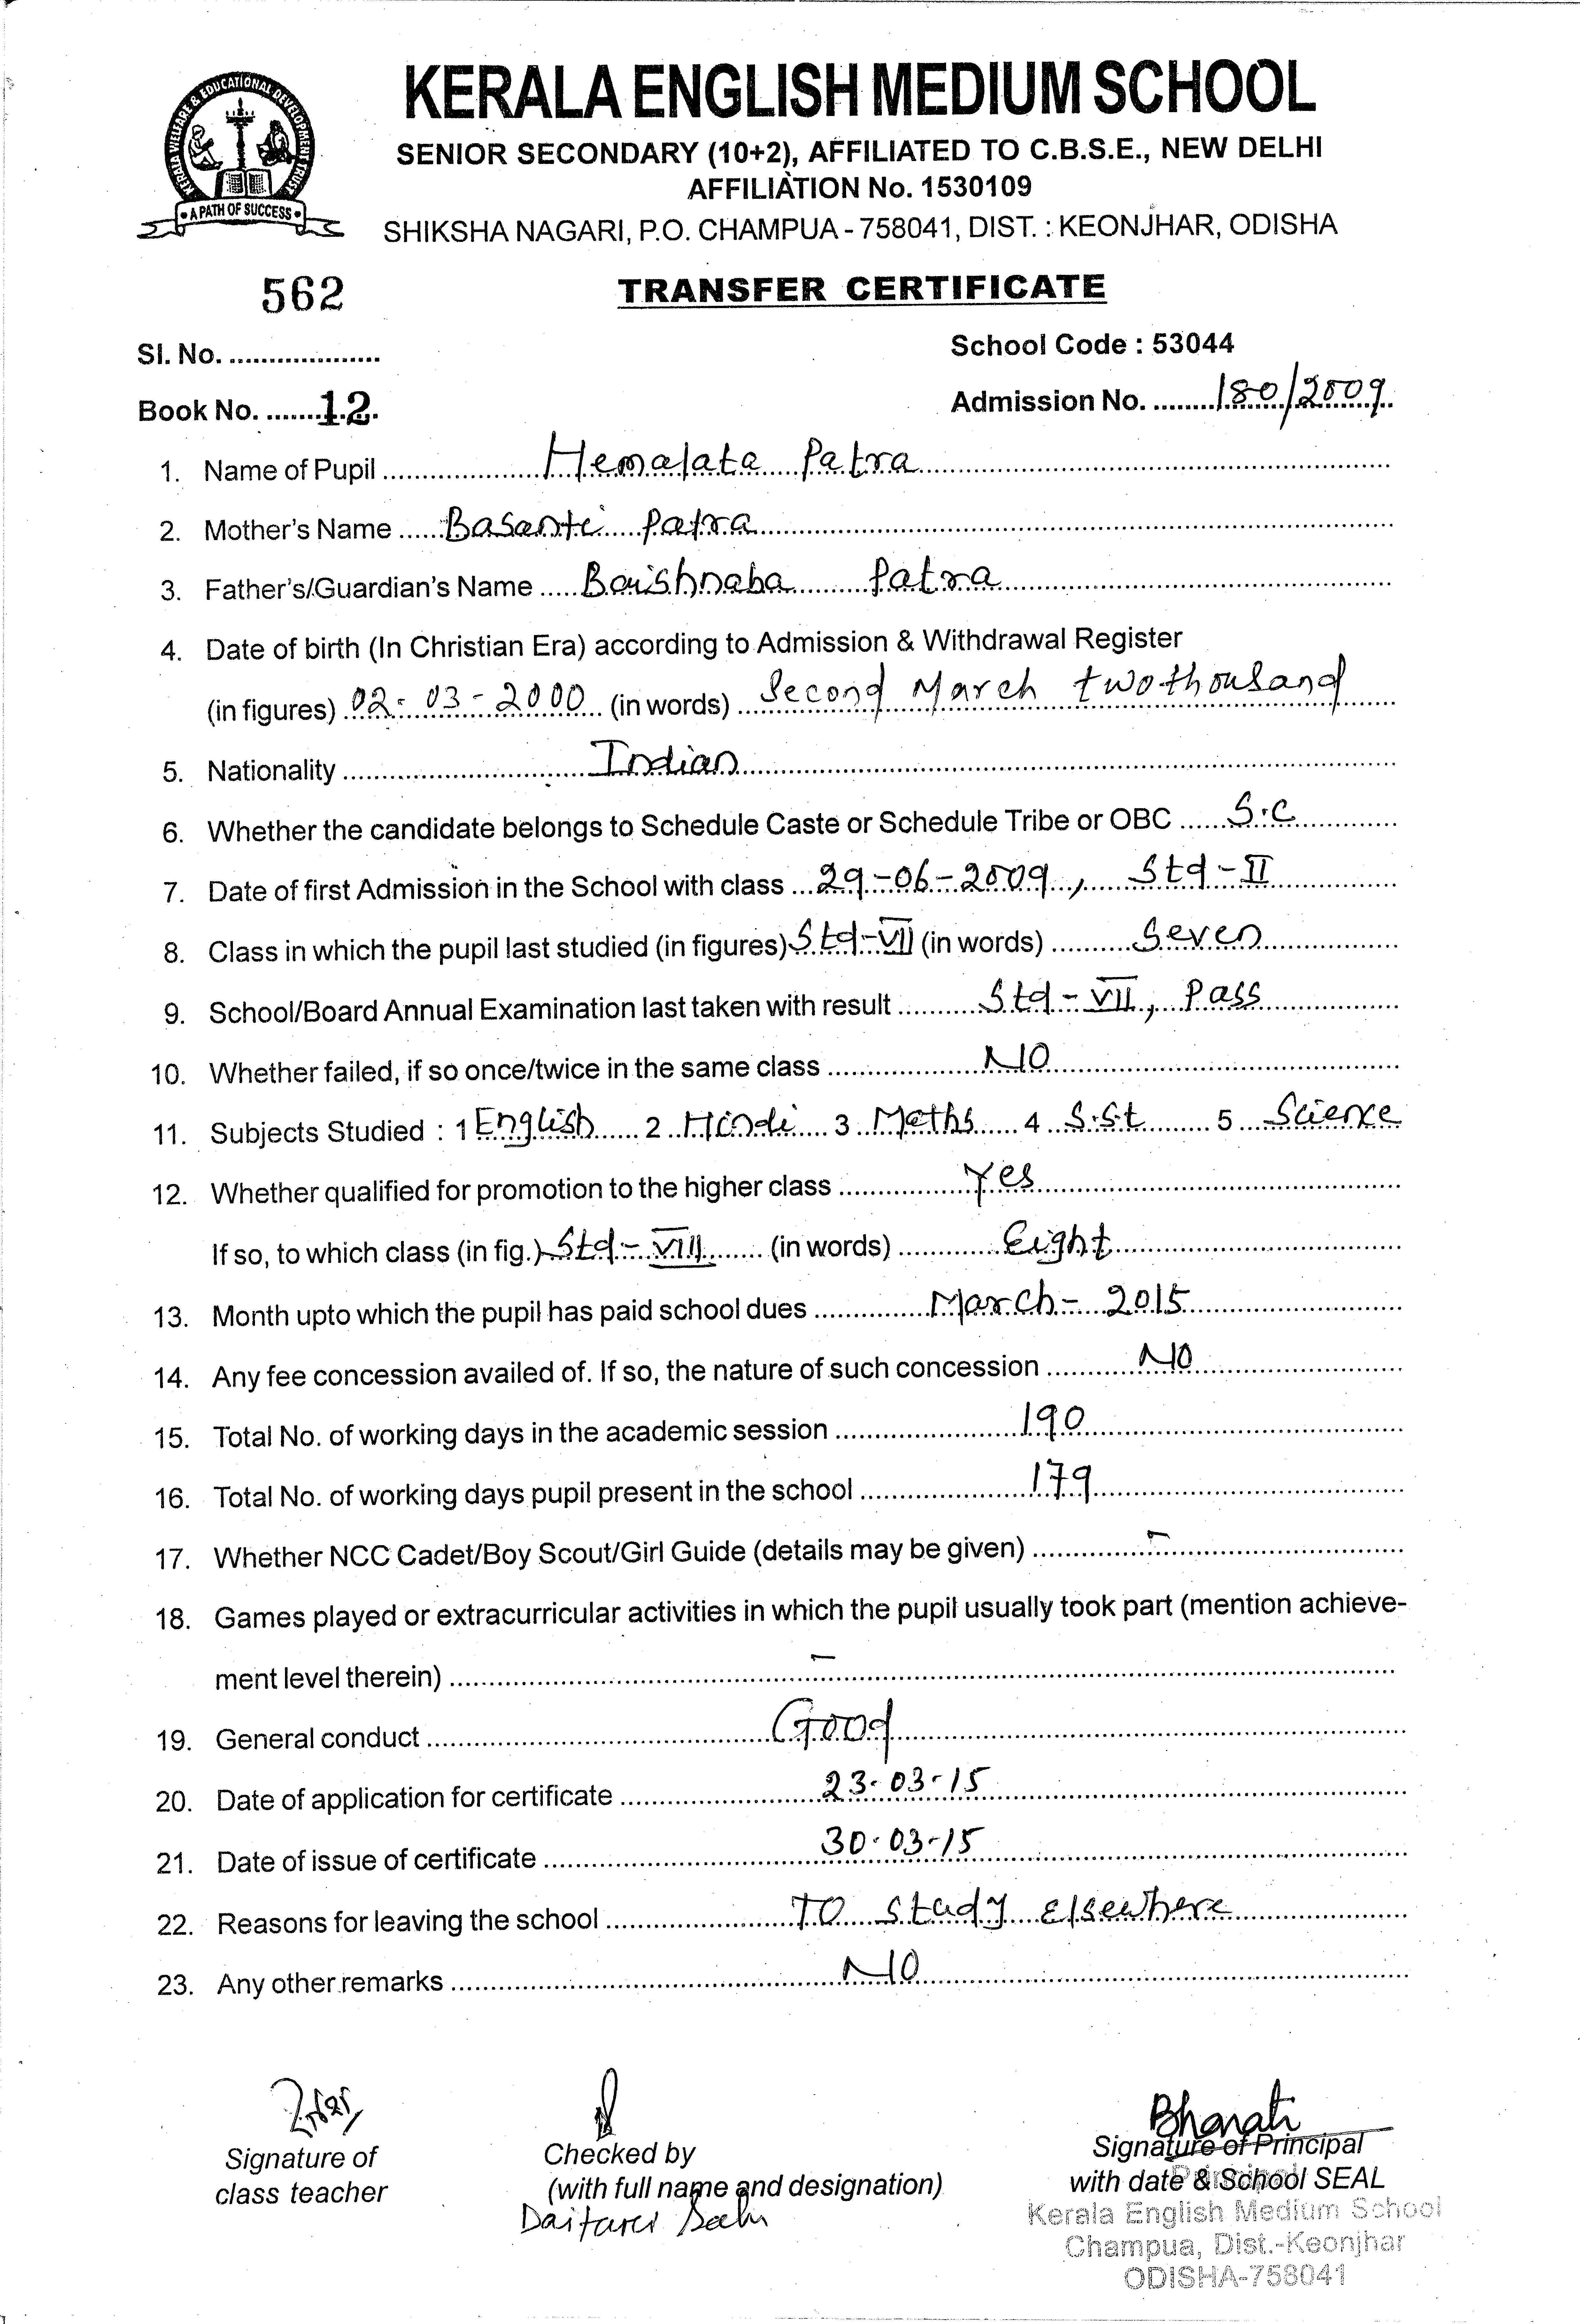 KERALA WELFARE & EDUCATIONAL DEVELOPMENT TRUST
• A PATH OF SUCCESS •
KERALA ENGLISH MEDIUM SCHOOL
SENIOR SECONDARY (10+2), AFFILIATED TO C.B.S.E., NEW DELHI
AFFILIATION No. 1530109
SHIKSHA NAGARI, P.O. CHAMPUA - 758041, DIST. : KEONJHAR, ODISHA
562 TRANSFER CERTIFICATE
Sl. No. .................... School Code : 53044
Book No. .......12. Admission No. .........180/2009
1. Name of Pupil ........ Hemalata Patra
2. Mother's Name ...... Basanti Patra
3. Father's/Guardian's Name ..... Baishnaba Patra
4. Date of birth (In Christian Era) according to Admission & Withdrawal Register
(in figures) 02-03-2000 (in words) Second March twothousand
5. Nationality ........ Indian
6. Whether the candidate belongs to Schedule Caste or Schedule Tribe or OBC ...... S.C
7. Date of first Admission in the School with class ... 29-06-2009, Std-II
8. Class in which the pupil last studied (in figures) Std-VII (in words) .......... Seven
9. School/Board Annual Examination last taken with result .......... Std-VII, Pass
10. Whether failed, if so once/twice in the same class ........ NO
11. Subjects Studied : 1 English 2 Hindi 3 Maths 4 S.St 5 Science
12. Whether qualified for promotion to the higher class ........ Yes
If so, to which class (in fig.) Std-VIII (in words) ........ Eight
13. Month upto which the pupil has paid school dues ........ March-2015
14. Any fee concession availed of. If so, the nature of such concession ........ NO
15. Total No. of working days in the academic session ........ 190
16. Total No. of working days pupil present in the school ........ 179
17. Whether NCC Cadet/Boy Scout/Girl Guide (details may be given) ........ -
18. Games played or extracurricular activities in which the pupil usually took part (mention achieve-
ment level therein) ........ -
19. General conduct ........ Good
20. Date of application for certificate ........ 23-03-15
21. Date of issue of certificate ........ 30-03-15
22. Reasons for leaving the school ........ TO study elsewhere
23. Any other remarks ........ NO
Bharati
Signature of Checked by Signature of Principal
class teacher (with full name and designation) with date & School SEAL
Principal
Daitari
Kerala English Medium School
Champua, Dist.-Keonjhar
ODISHA-758041